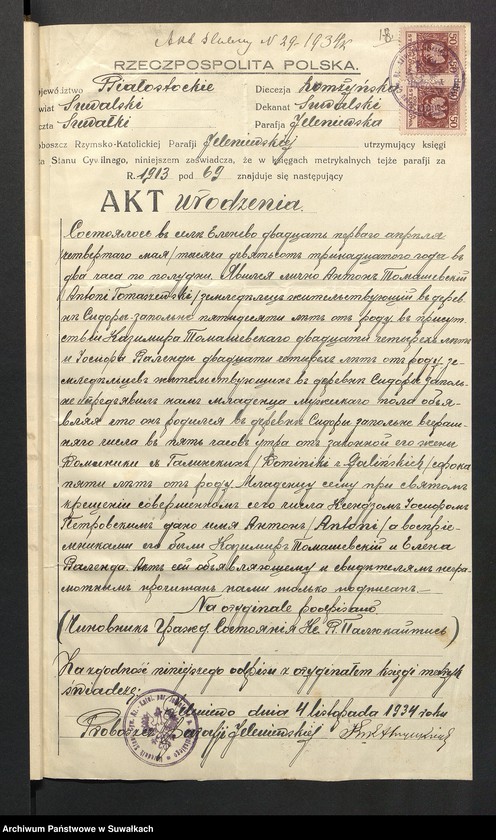 Akt slubny N 29-1934 r.
RZECZPOSPOLITA POLSKA.
ojewództwo Białostockie Diecezja Łomżyńska
wiat Suwalski Dekanat Suwalski
czta Suwałki Parafja Jeleniewska
oboszcz Rzymsko-Katolickiej Parafji Jeleniewskiej utrzymujący księgi
ta Stanu Cywilnego, niniejszem zaświadcza, że w księgach metrykalnych tejże parafji za
R. 1913 pod 69 znajduje się następujący
AKT urodzenia.
Состоялось въ селѣ Еленево двадцать перваго апрѣля
/четвертаго мая/ тысяча девятьсотъ тринадцатого года въ
два часа по полудни. Явился лично Антонъ Томашевскій
/Antoni Tomaszewski/ земледѣлецъ жительствующій въ дерев
нѣ Сидоры запольне пятидесяти лѣтъ отъ роду въ присут
ствіи Казимира Томашевскаго двадцати четырехъ лѣтъ
и Іосифа Валенды двадцати четырехъ лѣтъ отъ роду, зе-
мледѣльцевъ жительствующихъ въ деревнѣ Сидоры заполь-
не и предъявилъ намъ младенца мужескаго пола объя-
вляя что онъ родился въ деревнѣ Сидоры запольне вчераш-
няго числа въ пять часовъ утра отъ законной его жены
Доминики съ Галинскихъ /Dominiki z Galińskich/ сорока
пяти лѣтъ отъ роду. Младенцу сему при святомъ
крещеніи совершенномъ сего числа Ксендзомъ Іосифомъ
Петровскимъ дано имя Антонъ /Antoni/ а воспріе-
мниками его были Казимиръ Томашевскій и Елена
Валенда. Актъ сей объявляющему и свидѣтелямъ негра-
мотнымъ прочитанъ нами только подписанъ.—
Na oryginale podpisano
(Чиновникъ Гражд. Состоянія Кс. В. Палюкайтисъ)
Na zgodność niniejszego odpisu z oryginałem księgi metryk
świadczę:
Jeleniewo dnia 4 listopada 1934 roku
Proboszcz Parafji Jeleniewskiej
Archiwum Państwowe w Suwałkach